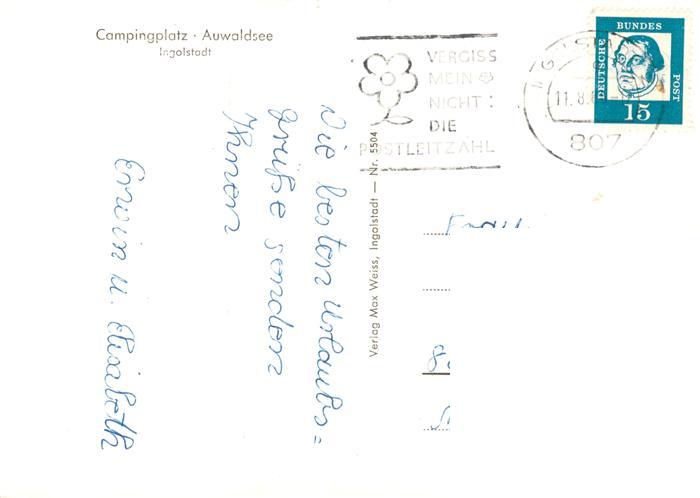 Campingplatz · Auwaldsee
Ingolstadt
VERGISS
MEIN
NICHT:
DIE
POSTLEITZAHL
11.8.
807
DEUTSCHE
BUNDES
POST
15
Die besten Urlaubs=
grüße senden
Ihnen
Erwin u. Elisabeth
Verlag Max Weiss, Ingolstadt — Nr. 5504